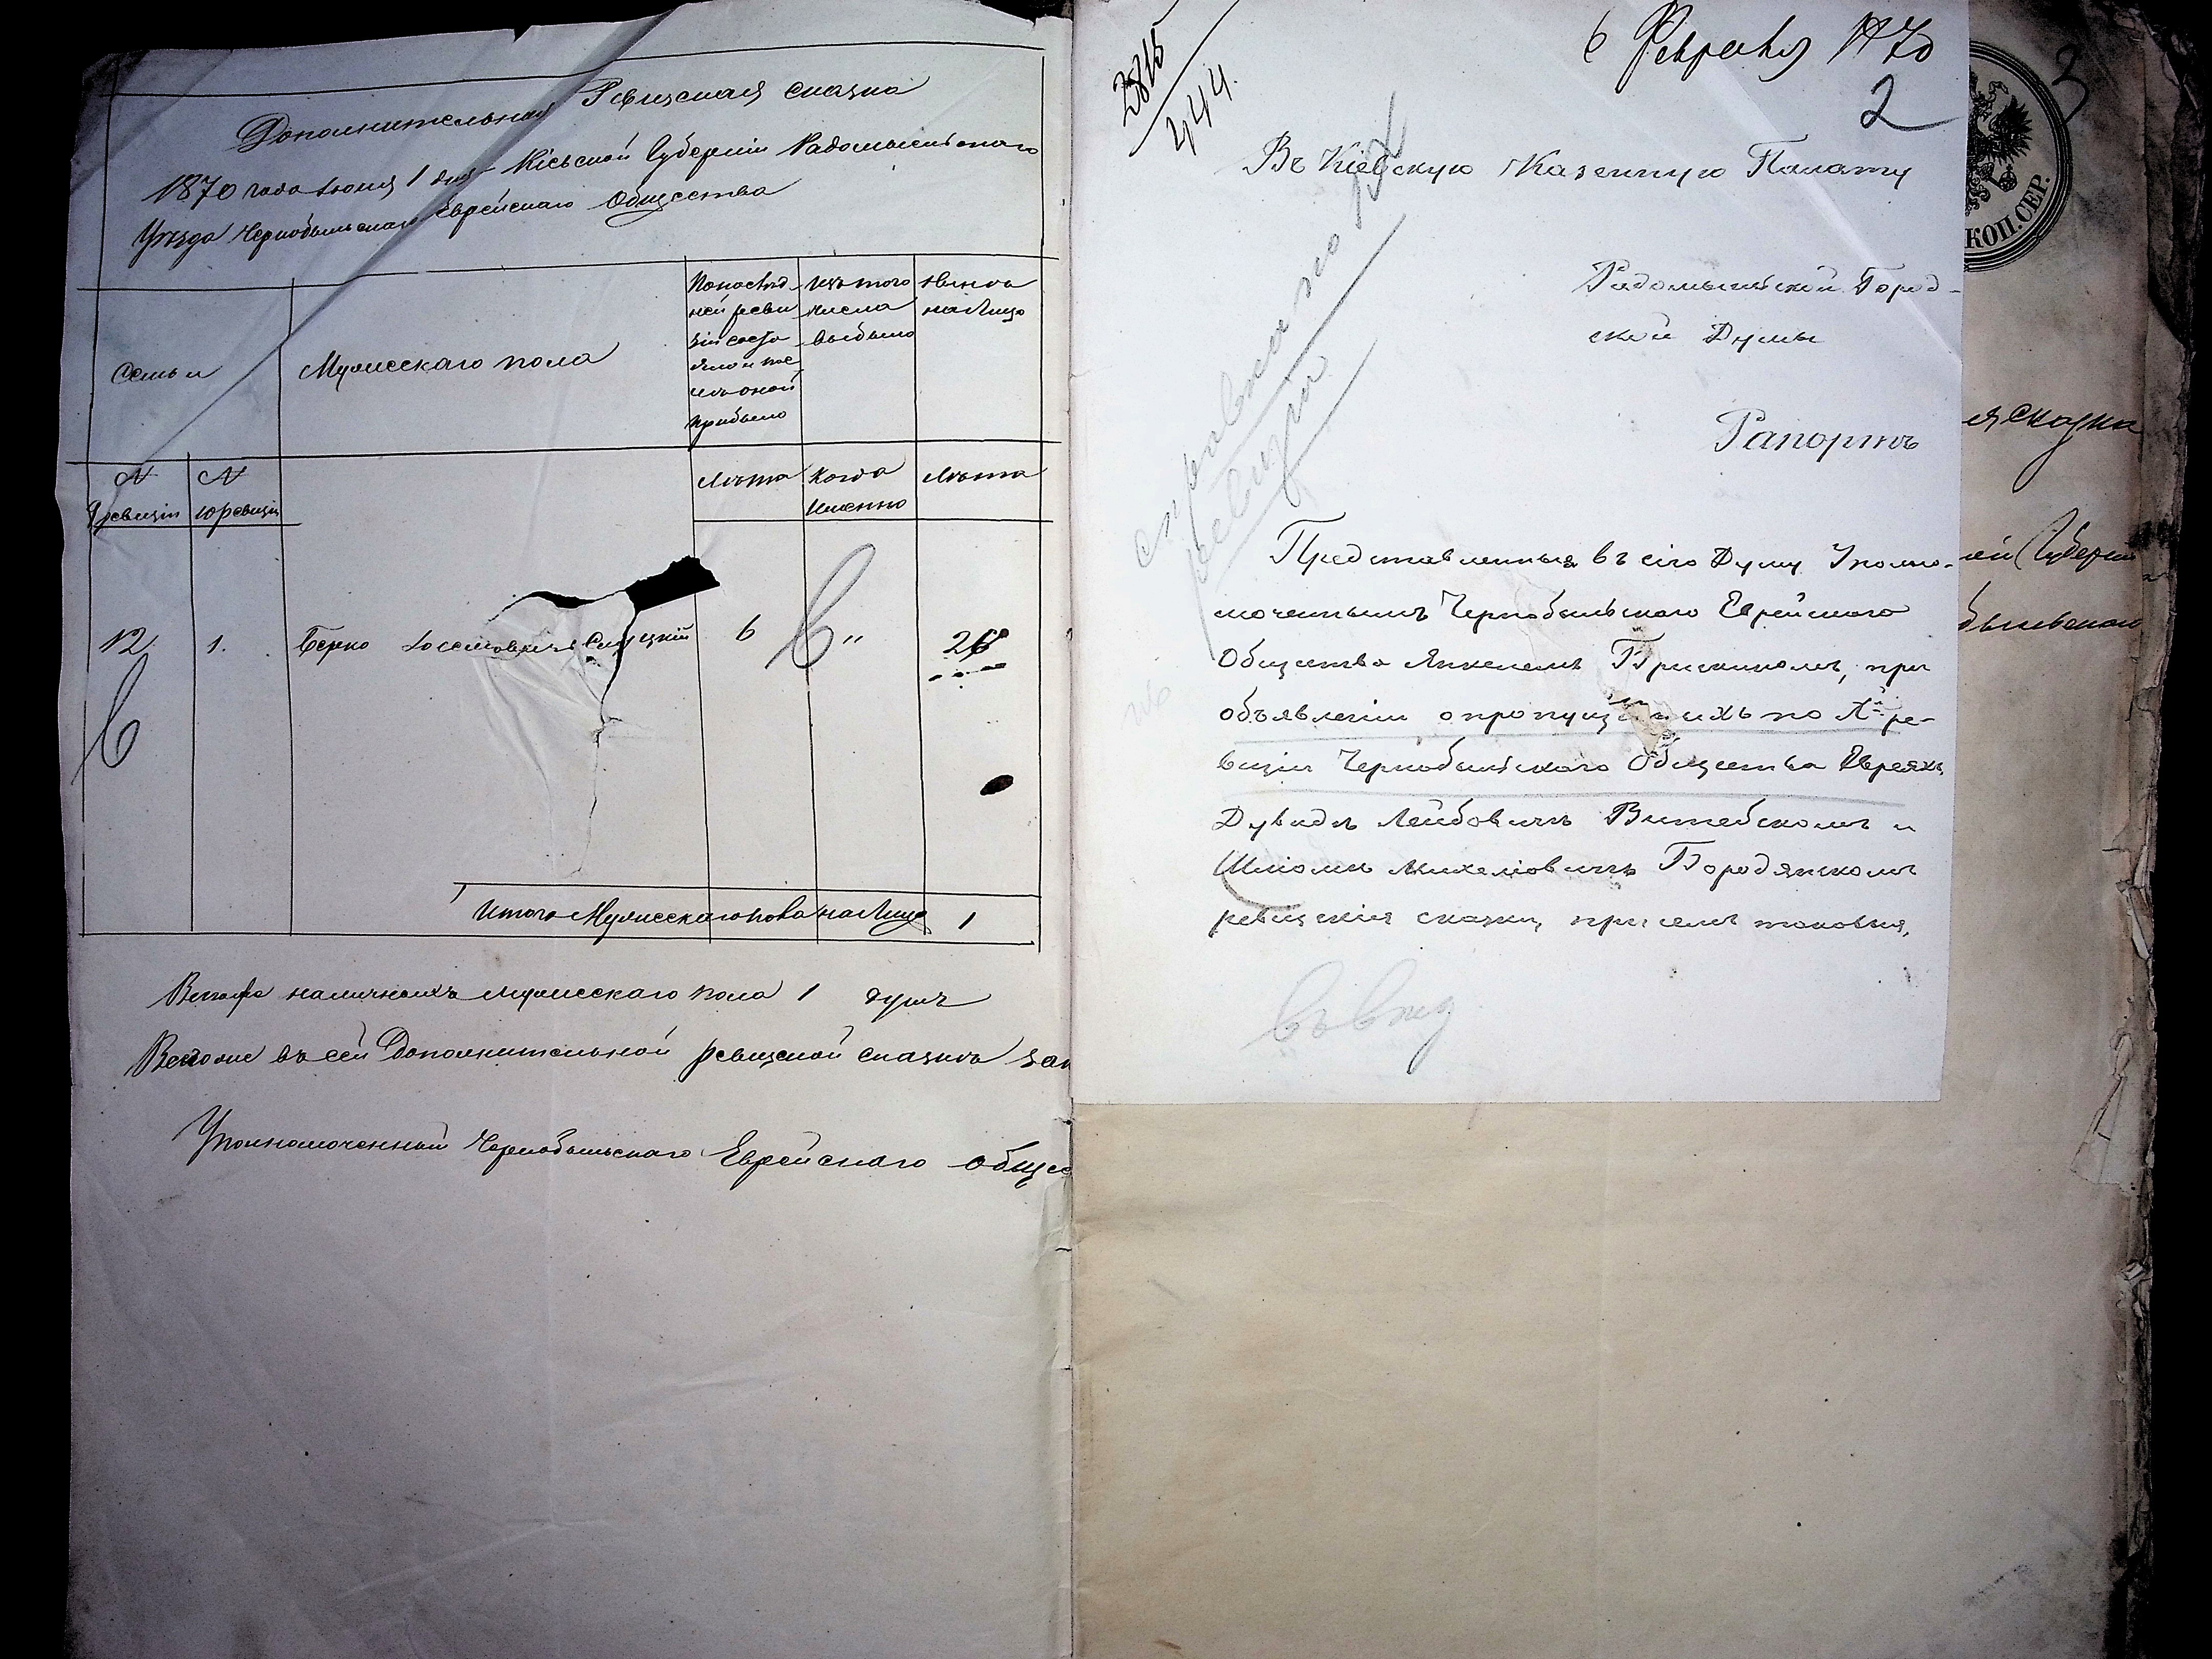 Дополнительная Ревизская сказка
1870 года Іюня 1 дня Кіевской Губерніи Радомысльскаго
Уѣзда Чернобыльскаго Еврейскаго Общества
Семьи
Мужескаго пола
По послѣд-
ней реви
зіи состо
яло и пос
лѣ оной
прибыло
Изъ того
числа
выбыло
Нынѣ
на лицо
№
ревизіи
№
10 ревизіи
Лѣта
Когда
именно
Лѣта
12
1.
Берко Слуцкій
6
"
26
Итого Мужескаго пола на лицо 1
наличныхъ мужескаго пола 1 душъ
въ сей Дополнительной ревизской сказкѣ
Уполномоченный Чернобыльскаго Еврейскаго общес
6 Февраля 1870
2
2815
444.
Въ Кіевскую Казенную Палату
Радомысльской Город-
ской Думы
Рапортъ
справка по
ревизіи
Представленныя въ сію Думу Уполно-
моченнымъ Чернобыльскаго Еврейскаго
Общества Янкелемъ Брискиномъ, при
объявленіи о ихъ по Х й ре-
визіи Чернобыльскаго Общества Евреяхъ
Дувидѣ Лейбовичѣ Витебскомъ и
Шліомѣ Михеліовичѣ Бородянскомъ
ревизскія сказки, при семъ таковыя,
3
КОП. СЕР.
я сказка
ей Губерніи
быльскаго